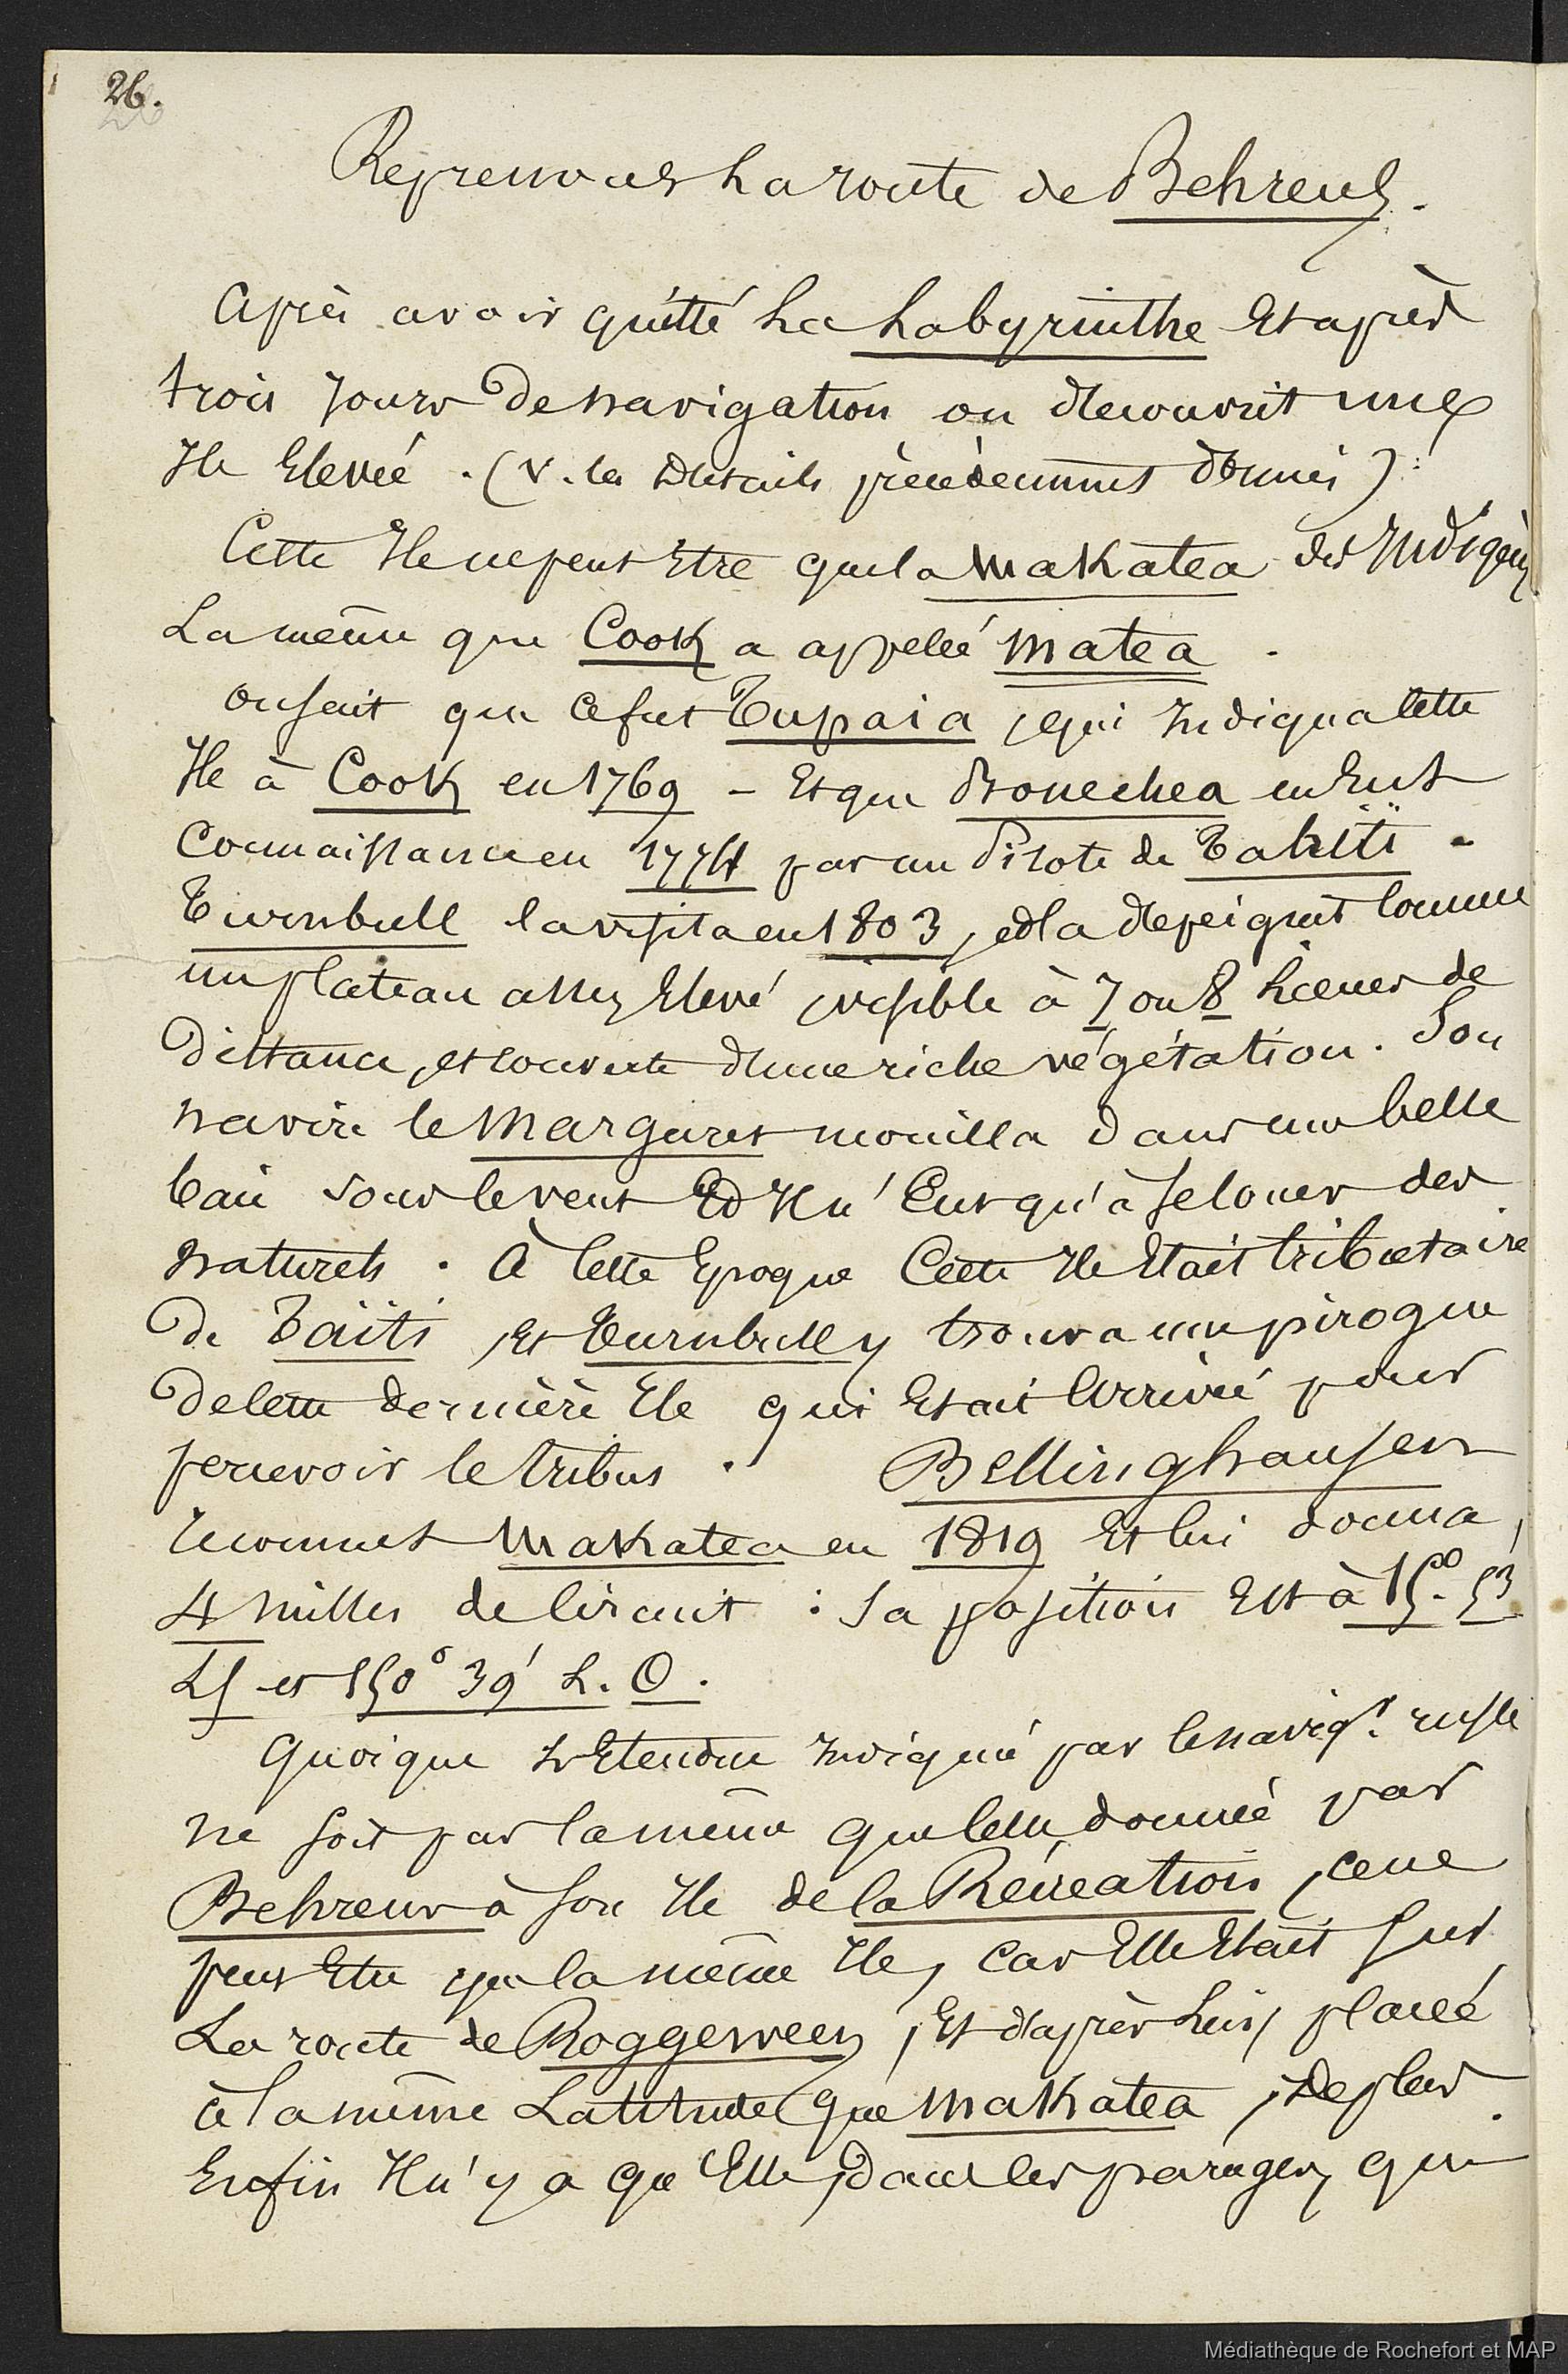 26.
Reprenons La route de Behrens.
Après avoir quitté Le Labyrinthe Et après
trois Jours De navigation on découvrit une
Ile Elevée . (V. les Détails précédemment donnés) :
Cette Ile ne peut Etre que la Makatea des Indigènes
La même que Cook a appelée Matea .
on sait que ce fut Tupaia , qui Indiqua Cette
Ile à Cook en 1769 - Et que Bonechea en Eut
Connaissance en 1774 par un Pilote de Tahiti -
Turnbull la visita en 1803, et la dépeignit Comme
un plateau assez Elevé , visible à 7 ou 8 Lieues de
Distance, et couverte d'une riche végétation. Son
navire le Margaret mouilla dans une belle
baie sous le vent Et Il n'Eut qu'à se louer des
naturels . à Cette Epoque Cette Ile Etait tributaire
De Taïti , Et Turnbull y trouva une pirogue
De cette dernière Ile qui Etait Arrivée pour
percevoir le tribut . Bellinghausen
reconnut Makatea en 1819 Et lui donna,
4 milles de Circuit : Sa position Est à 15° 53'
L S et 150° 39' L. O.
Quoique L'Etendue Indiquée par le navigr. russe
ne soit pas la même que celle donnée par
Behrens à son Ile de la Récréation , ce ne
peut Etre que la même Ile, Car Elle Etait sur
La route de Roggeween , Et d'après Lui, placée
à la même Latitude que Makatea , De plus.
Enfin Il n'y a qu'Elle, dans les parages, qui